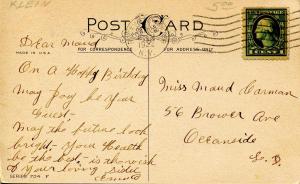 KLEIN
500
POST CARD
FOR CORRESPONDENCE
FOR ADDRESS ONLY
MADE IN U.S.A.
N.Y.
1 CENT 1
Dear Maud
On A Happy Birthday
May Joy be your
Guest—
May the future look
bright— Your Health
be the best, is the wish
of your loving sister
Miss Maud Carman
56 Brower Ave
Oceanside
L.I.
SERIES 704 F